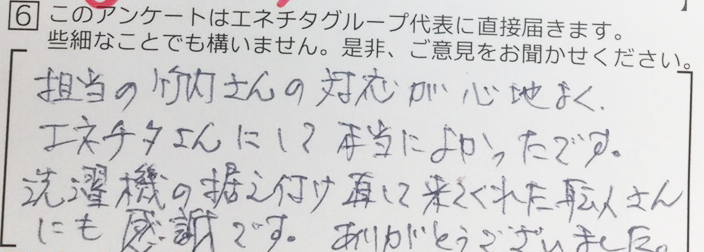 6 このアンケートはエネチタグループ代表に直接届きます。
些細なことでも構いません。是非、ご意見をお聞かせください。
担当の竹内さんの対応が心地よく、
エネチタさんにして本当によかったです。
洗濯機の据え付け直して来てくれた職人さん
にも感誠です。ありがとうございました。